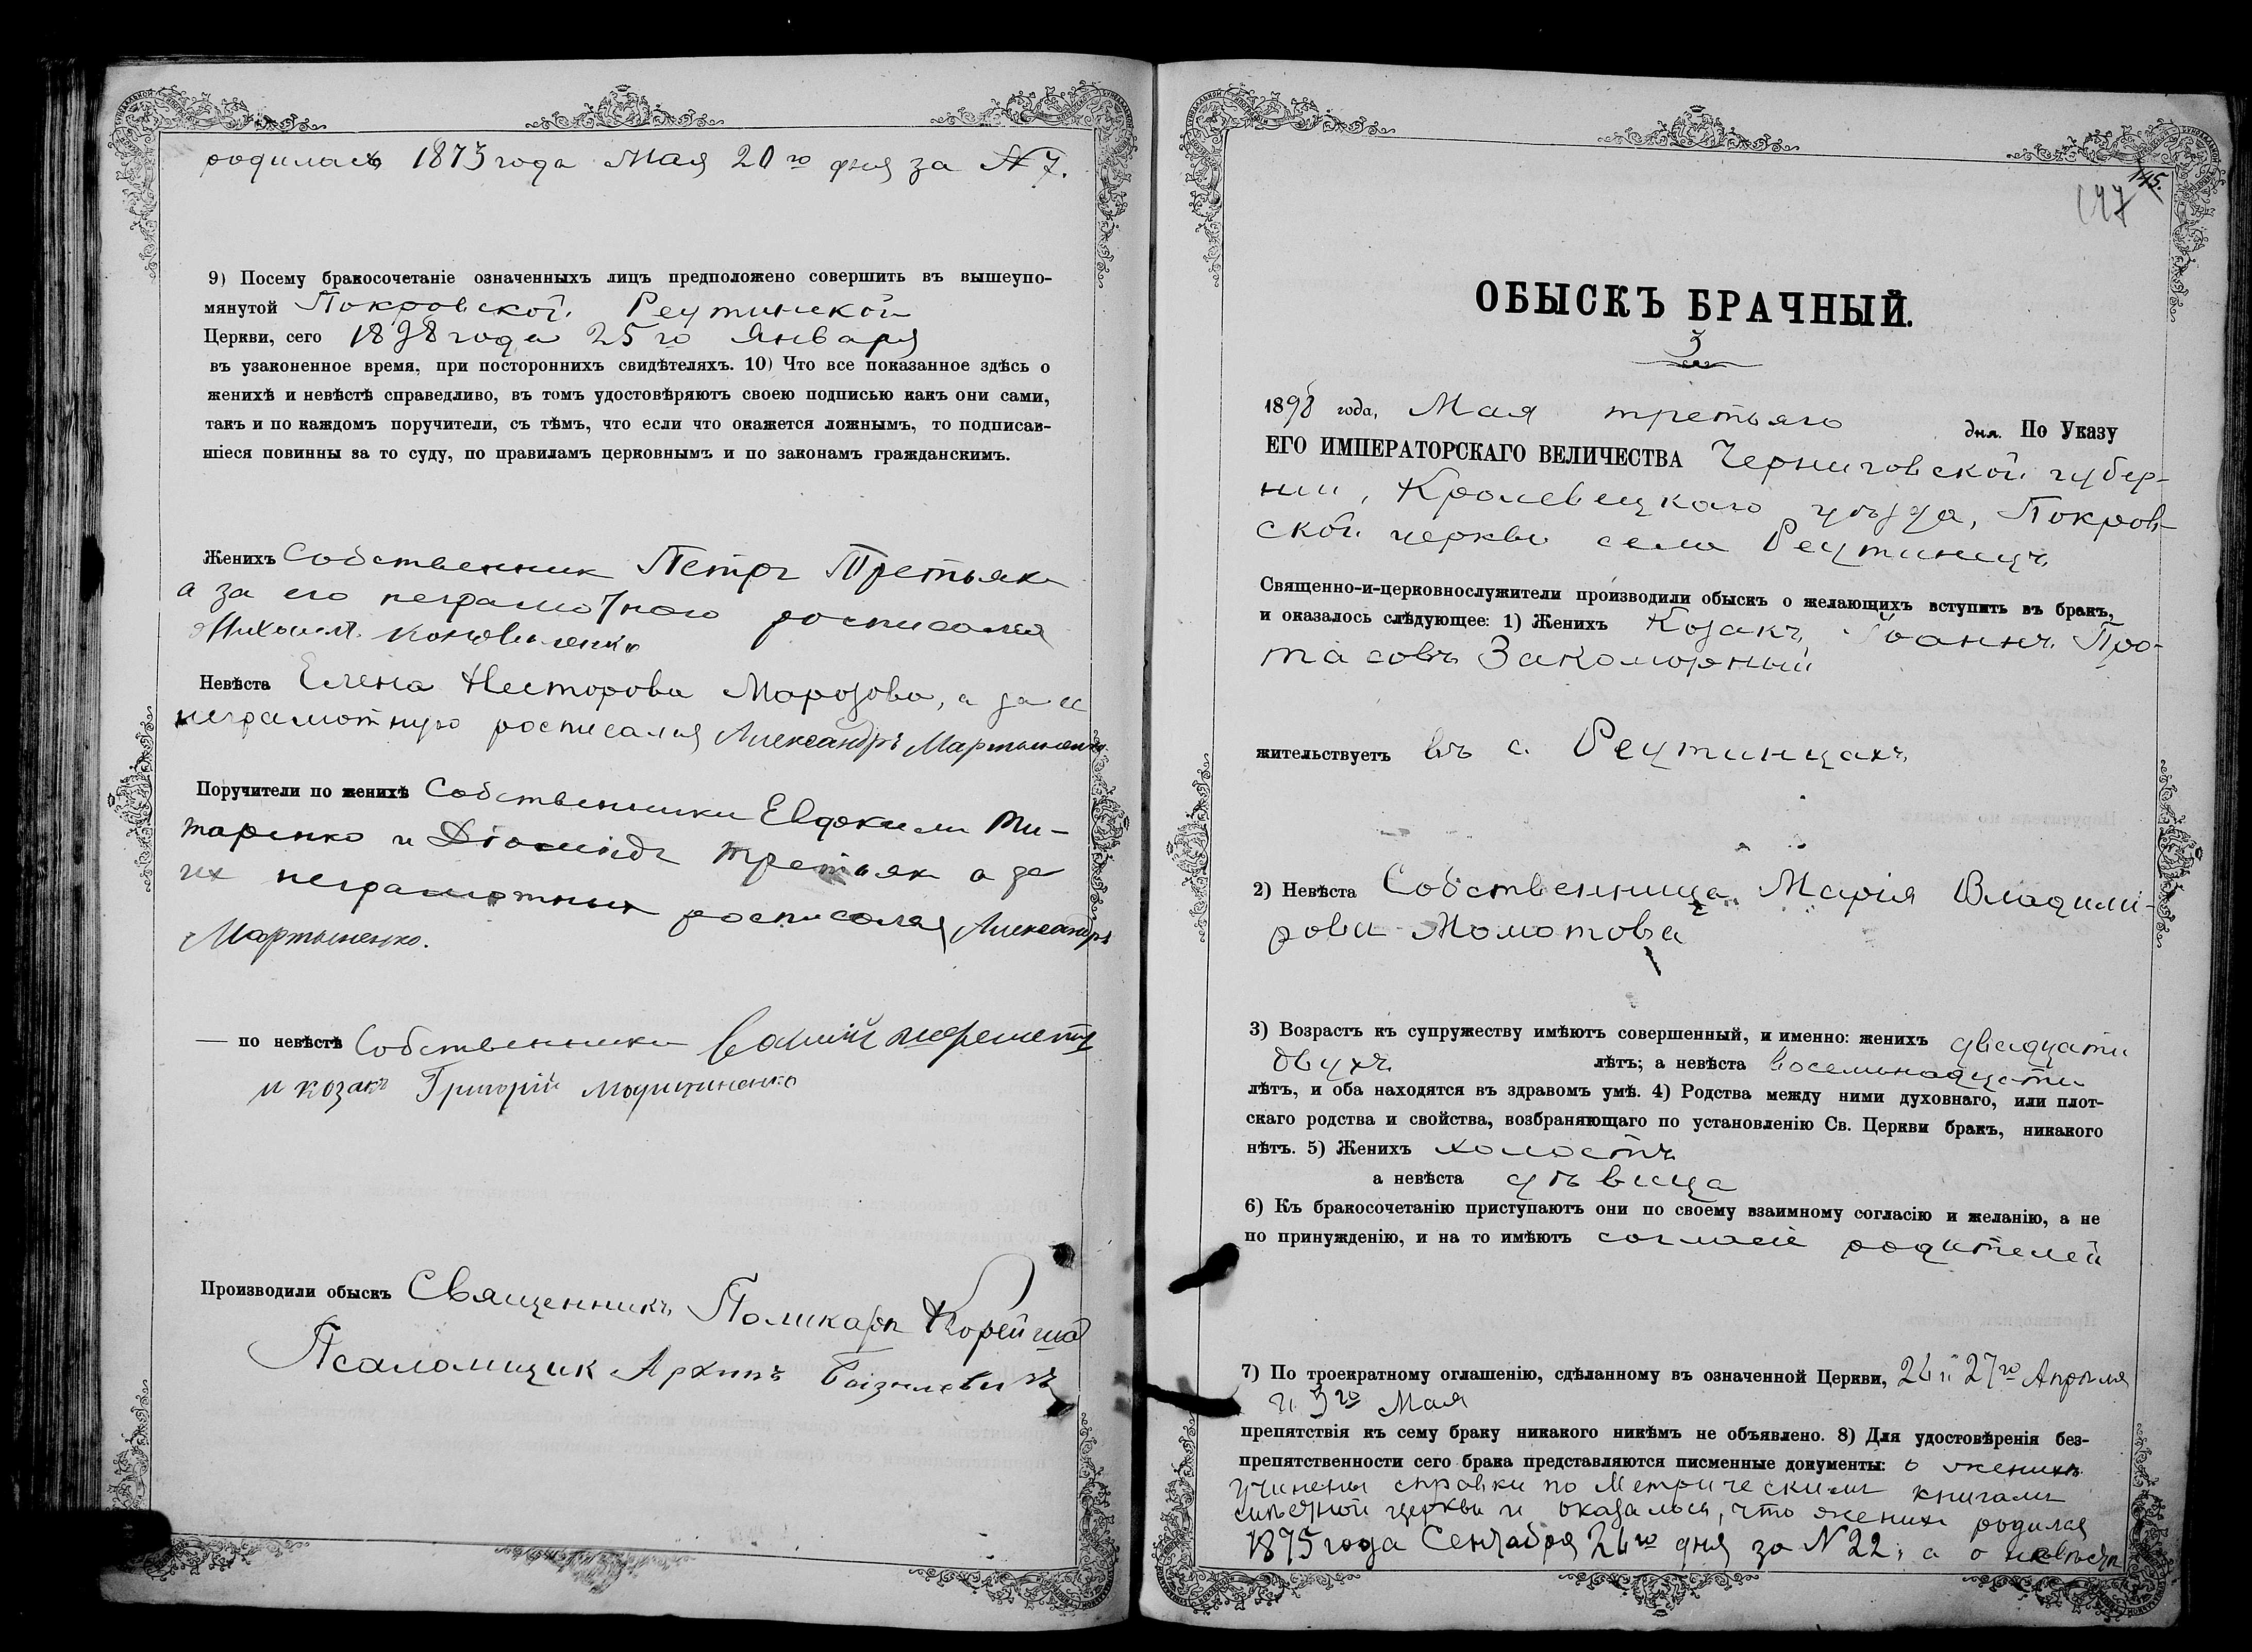 родилась 1875 года Мая 20 го дня за № 7.
9) Посему бракосочетаніе означенныхъ лицъ предположено совершить въ вышеупо-
мянутой Покровской Реутинской
Церкви, сего 1898 года 25 го Января
въ узаконенное время, при постороннихъ свидѣтеляхъ. 10) Что все показанное здѣсь о
женихѣ и невѣстѣ справедливо, въ томъ удостовѣряютъ своею подписью какъ они сами,
такъ и по каждомъ поручители, съ тѣмъ, что если что окажется ложнымъ, то подписав-
шіеся повинны за то суду, по правиламъ церковнымъ и по законамъ гражданскимъ.
Женихъ Собственник Петръ Третьякъ
а за его неграмотного росписался
Михаил Коноваленко
Невѣста Елена Несторова Марозова, а за ее
неграмотную росписался Александръ Мартыненко
Поручители по женихѣ Собственники Евдоким Ти-
таренко и Діомидъ Третьяк а за
их неграмотных росписался Александръ
Мартыненко.
— по невѣстѣ Собственники Шереметъ
и козакъ Григорій
Производили обыскъ Священникъ Поликарп Корейша
Псаломщик Архипъ
145.
147
ОБЫСКЪ БРАЧНЫЙ.
3
1898 года, Мая третьяго дня. По Указу
ЕГО ИМПЕРАТОРСКАГО ВЕЛИЧЕСТВА Черниговской губер-
нии, Кролевецкаго уѣзда, Покров-
ской церкви села Реутинецъ
Священно-и-церковнослужители производили обыскъ о желающихъ вступить въ бракъ,
и оказалось слѣдующее: 1) Женихъ Козакъ Іоаннъ Про-
тасовъ Закоморный
жительствуетъ въ с. Реутинцахъ
2) Невѣста Собственница Марія Владимі-
рова Момотова
3) Возрастъ къ супружеству имѣютъ совершенный, и именно: женихъ двадцати
двухъ лѣтъ; а невѣста восемьнадцати
лѣтъ, и оба находятся въ здравомъ умѣ. 4) Родства между ними духовнаго, или плот-
скаго родства и свойства, возбраняющаго по установленію Св. Церкви бракъ, никакого
нѣтъ. 5) Женихъ холостъ
а невѣста дѣвица
6) Къ бракосочетанію приступаютъ они по своему взаимному согласію и желанію, а не
по принужденію, и на то имѣютъ согласіе родителей
7) По троекратному оглашенію, сдѣланному въ означенной Церкви, 26 и 27 го Апрѣля
и 3 го Мая
препятствія къ сему браку никакого никѣмъ не объявлено. 8) Для удостовѣренія без-
препятственности сего брака представляются писменные документы: о женихѣ
учинены справки по Метрическим книгамъ
церкви и оказалось, что жених родился
1875 года Сентября 26 го дня за № 22; а о невѣстѣ